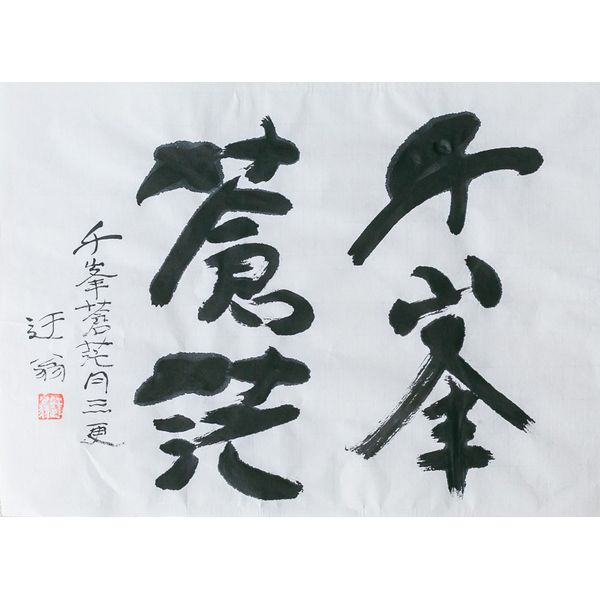 千峯
蒼茫
千峯蒼茫月三更
迂翁